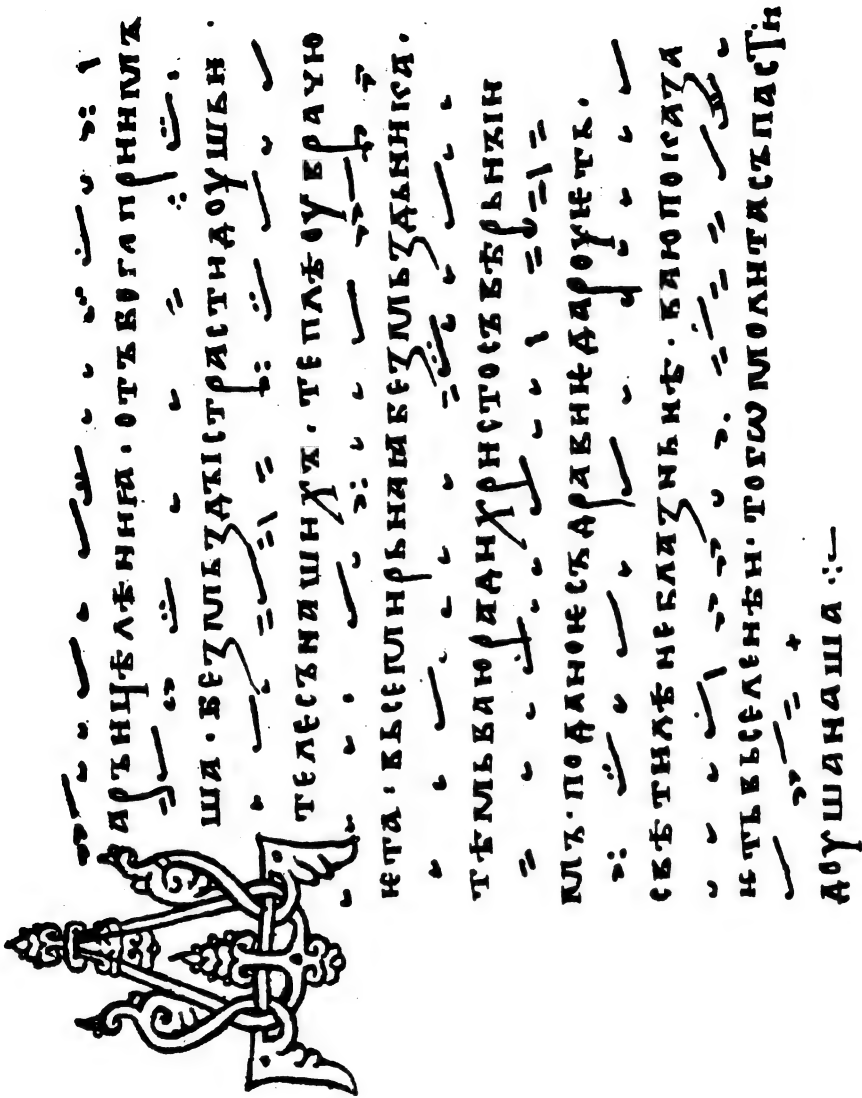 Даръицѣлѣниꙗ·отъбогаприимъ
ша·беꙁмьꙁдъістрастидоушьи·
телесънашихъ·теплѣоуврачю
ѥта·вьсемирьнаꙗбеꙁмьꙁдьника.
тѣмьваюрадихристосъвѣрьнъіи
мъ·поданоѥсъдравиѥдароуѥть.
свѣтилѣнеблаꙁньнѣ·ваюпокаꙁа
ѥтьвьселенѣи·тогѡмолитасъпасти
доушанаша